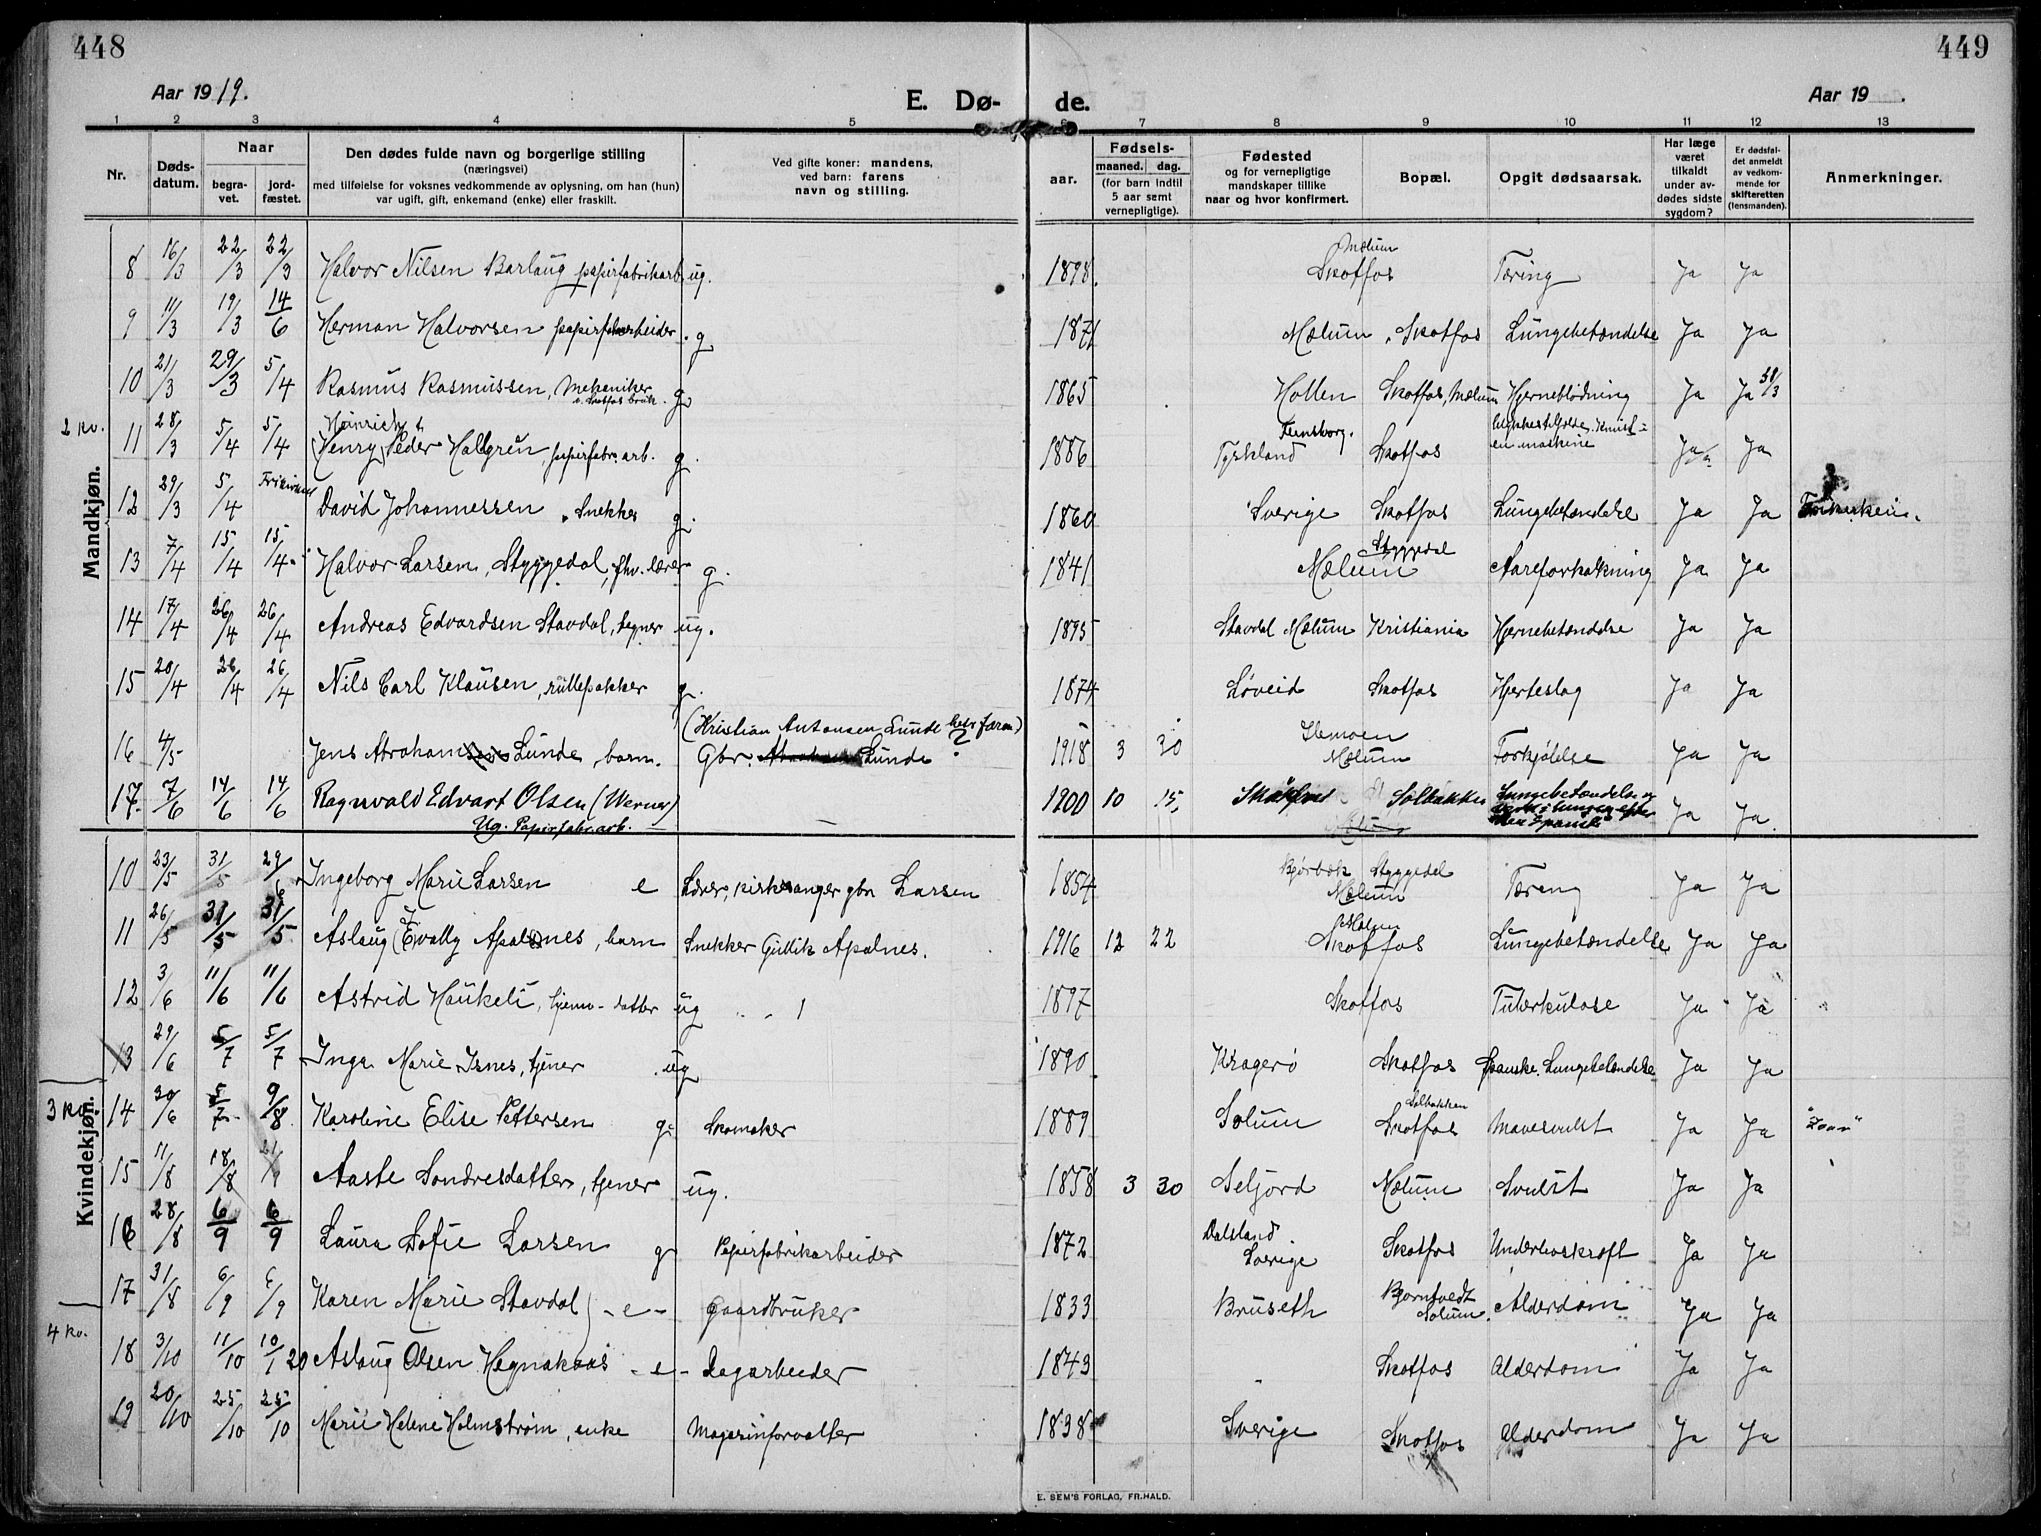 448
449
Aar 1919.
E. Dø- de.
Aar 19 .
1 2 3 4 5 6 7 8 9 10 11 12 13
Nr.
Døds-datum.
Naar
begra-vet.
jord-fæstet.
Den dødes fulde navn og borgerlige stilling
(næringsvei)
med tilføielse for voksnes vedkommende av oplysning, om han (hun)
var ugift, gift, enkemand (enke) eller fraskilt.
Ved gifte koner: mandens,
ved barn: farens
navn og stilling.
Fødsels-
aar.
maaned. dag.
(for barn indtil
5 aar samt
vernepligtige).
Fødested
og for vernepligtige
mandskaper tillike
naar og hvor konfirmert.
Bopæl.
Opgit dødsaarsak.
Har læge
været
tilkaldt
under av-
dødes sidste
sygdom?
Er dødsfal-
det anmeldt
av vedkom-
mende for
skifteretten
(lensmanden).
Anmerkninger.
Mandkjøn.
8 16/3 22/3 22/3 Halvor Nilsen Barlaug papirfabrikarb. ug. 1898. Mælum Skotfos Tæring Ja Ja
9 11/3 19/3 14/6 Herman Halvorsen papirfabarbeider. g 1871 Mælum. Skotfos Lungebetændelse Ja Ja
10 21/3 29/3 5/4 Rasmus Rasmussen, Mekaniker v. Skotfos bruk. g. 1865 Hollen Skotfos, Mælum Hjerneblødning Ja Ja 31/3
2 kv.
11 28/3 5/4 5/4 Heinrich (Henry) Peder Hallgren, papirfabr. arb. g. 1886 Flensborg. Tyskland Skotfos Ulykkestilfælde. Knust i en maskine Ja Ja
12 29/3 5/4 David Johannessen, Snekker g. 1860 Sverige Skotfos Lungebetændelse Ja Ja
13 7/4 15/4 15/4 Halvor Larsen, Styggedal, fhv. lærer g. 1841 Mælum Styggedal Aareforkalkning Ja Ja
14 17/4 26/4 26/4 Andreas Edvardsen Stavdal, tegner ug. 1895 Stavdal Mælum Kristiania Hjernebetændelse Ja Ja
15 20/4 26/4 26/4 Nils Carl Klausen, rullepakker g. 1874 Løveid Skotfos Hjerteslag Ja Ja
(Kristian Antonsen Lunde heter faren)
16 4/5 Jens Abrahamsen Lunde, barn. Gbr. Lunde ? 1918 3 30 Mælum Forkjølelse Ja Ja
17. 7/6 14/6 14/6 Ragnvald Edvart Olsen (Werner) 1900 10 15, Skotfos Solbakken Lungebetændelse og Ja Ja.
Ug. Papirfabr. arb. —
Kvindekjøn.
10 23/5 31/5 29/6 Ingeborg Marie Larsen e Lærer, kirkesanger gbr Larsen 1854 Bjørbæk Mælum Styggedal Tæring Ja Ja
11 26/5 31/5 31/5 Aslaug Evally Apalnes, barn Snekker Gullik Apalnes. 1916 12 22 Mælum Skotfos Lungebetændelse Ja Ja
12 3/6 11/6 11/6 Astrid Haukeli, hjemv. datter ug 1897 Skotfos Tuberkulose Ja Ja
13 29/6 5/7 5/7 Inga Marie Isnes, tjener ug 1890 Kragerø Skotfos Spanske. Lungebetændelse Ja Ja
3 kv.
14 30/6 5/7 9/8 Karoline Elise Pettersen g. Skomaker 1889 Solum Solbakken Skotfos Mavesvulst Ja Ja
15 11/8 18/8 Aaste Sondresdatter, tjener ug. 1858 3 30 Seljord Mælum Svulst Ja Ja
16 28/8 6/9 6/9 Laura Sofie Larsen g Papirfabrikarbeider 1872 Dalsland Sverige Skotfos Underlivskræft Ja Ja
17 31/8 6/9 6/9 Karen Marie Stavdal - e - Gaardbruker 1833 Bruseth Bjørntvedt Solum. Alderdom Ja Ja
4 kv.
18 3/10 11/10 10/1 20 Aslaug Olsen Hegnakaas - e - Dagarbeider 1843 Skotfos Alderdom Ja Ja
19 20/10 25/10 25/10 Marie Helene Holmstrøm, enke Magasinforvalter 1838 Sverige Skotfos Alderdom Ja Ja
E. SEM'S FORLAG, FR.HALD.